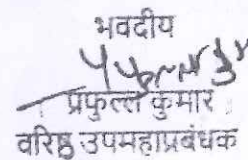 भवदीय
प्रफुल्ल कुमार
वरिष्ठ उपमहाप्रबंधक